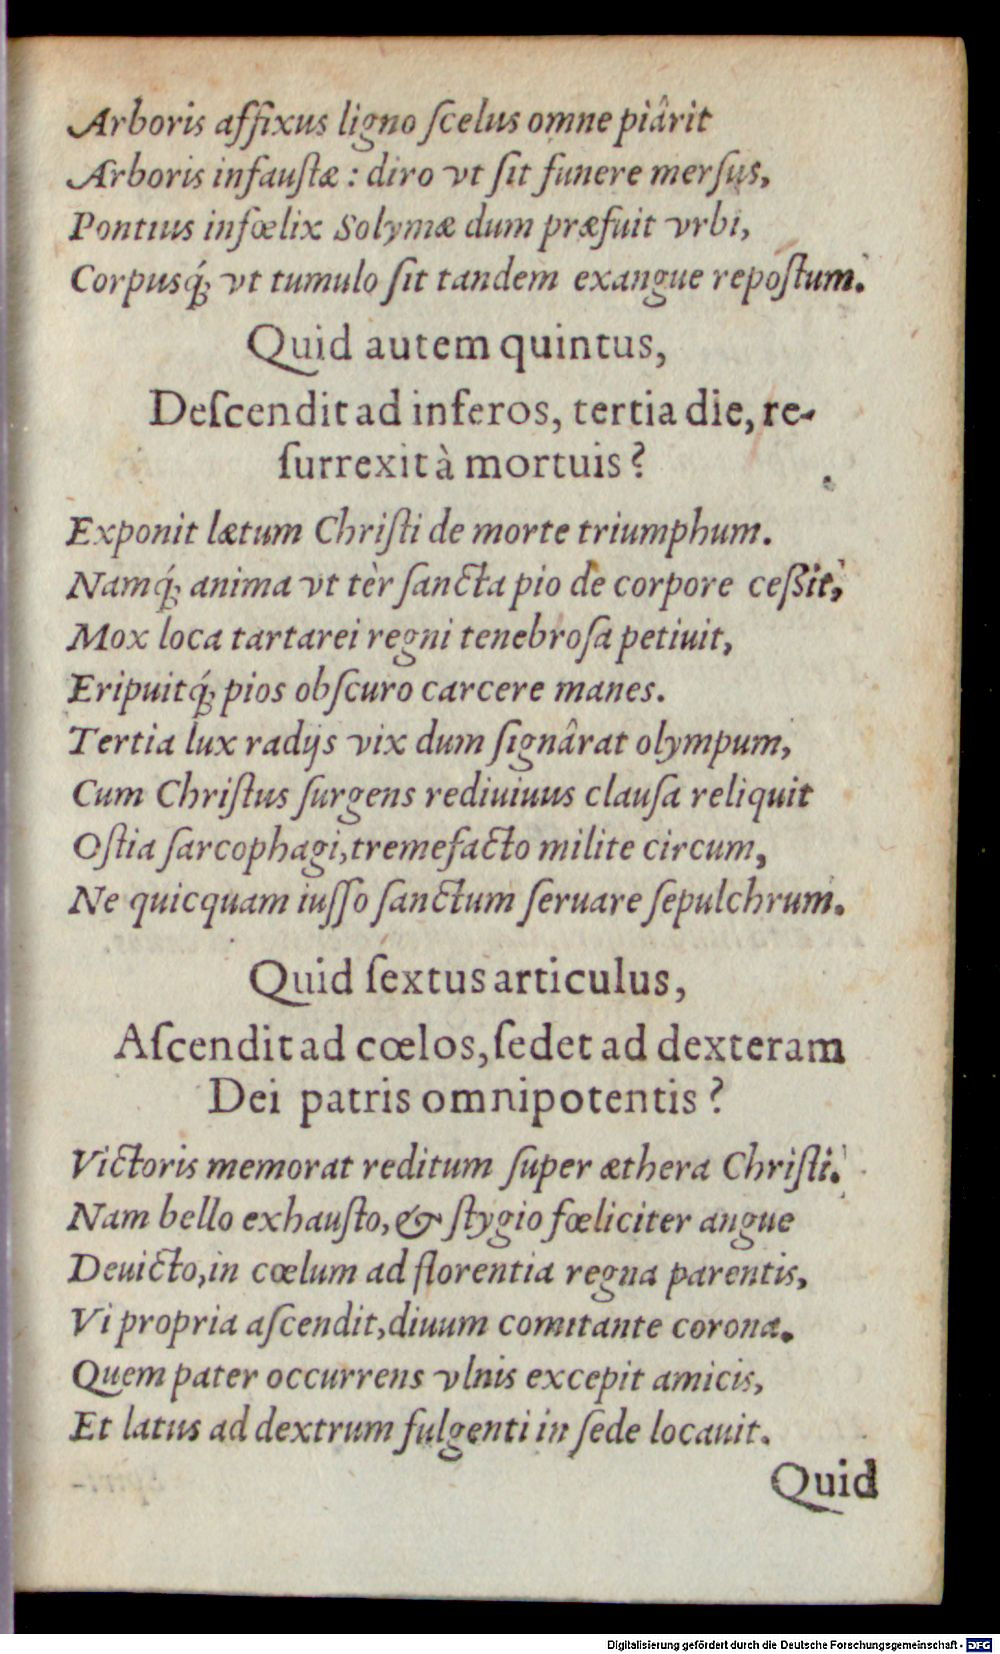 Arboris affixus ligno ſcelus omne piârit
Arboris infauſtæ : diro vt ſit funere merſus,
Pontius infœlix Solymæ dum præfuit vrbi,
Corpusq́; vt tumulo ſit tandem exangue repoſtum.
Quid autem quintus,
Deſcendit ad inferos, tertia die, re-
ſurrexit à mortuis?
Exponit lætum Chriſti de morte triumphum.
Namq́; anima vt tèr ſancta pio de corpore ceßit,
Mox loca tartarei regni tenebroſa petiuit,
Eripuitq́; pios obſcuro carcere manes.
Tertia lux radijs vix dum ſignârat olympum,
Cum Chriſtus ſurgens rediuiuus clauſa reliquit
Oſtia ſarcophagi, tremefacto milite circum,
Ne quicquam iuſſo ſanctum ſeruare ſepulchrum.
Quid ſextus articulus,
Aſcendit ad cœlos, ſedet ad dexteram
Dei patris omnipotentis?
Victoris memorat reditum ſuper æthera Chriſti.
Nam bello exhauſto, & ſtygio fœliciter angue
Deuicto, in cœlum ad florentia regna parentis,
Vi propria aſcendit, diuum comitante corona.
Quem pater occurrens vlnis excepit amicis,
Et latus ad dextrum fulgenti in ſede locauit.
Quid
Digitalisierung gefördert durch die Deutsche Forschungsgemeinschaft - DFG